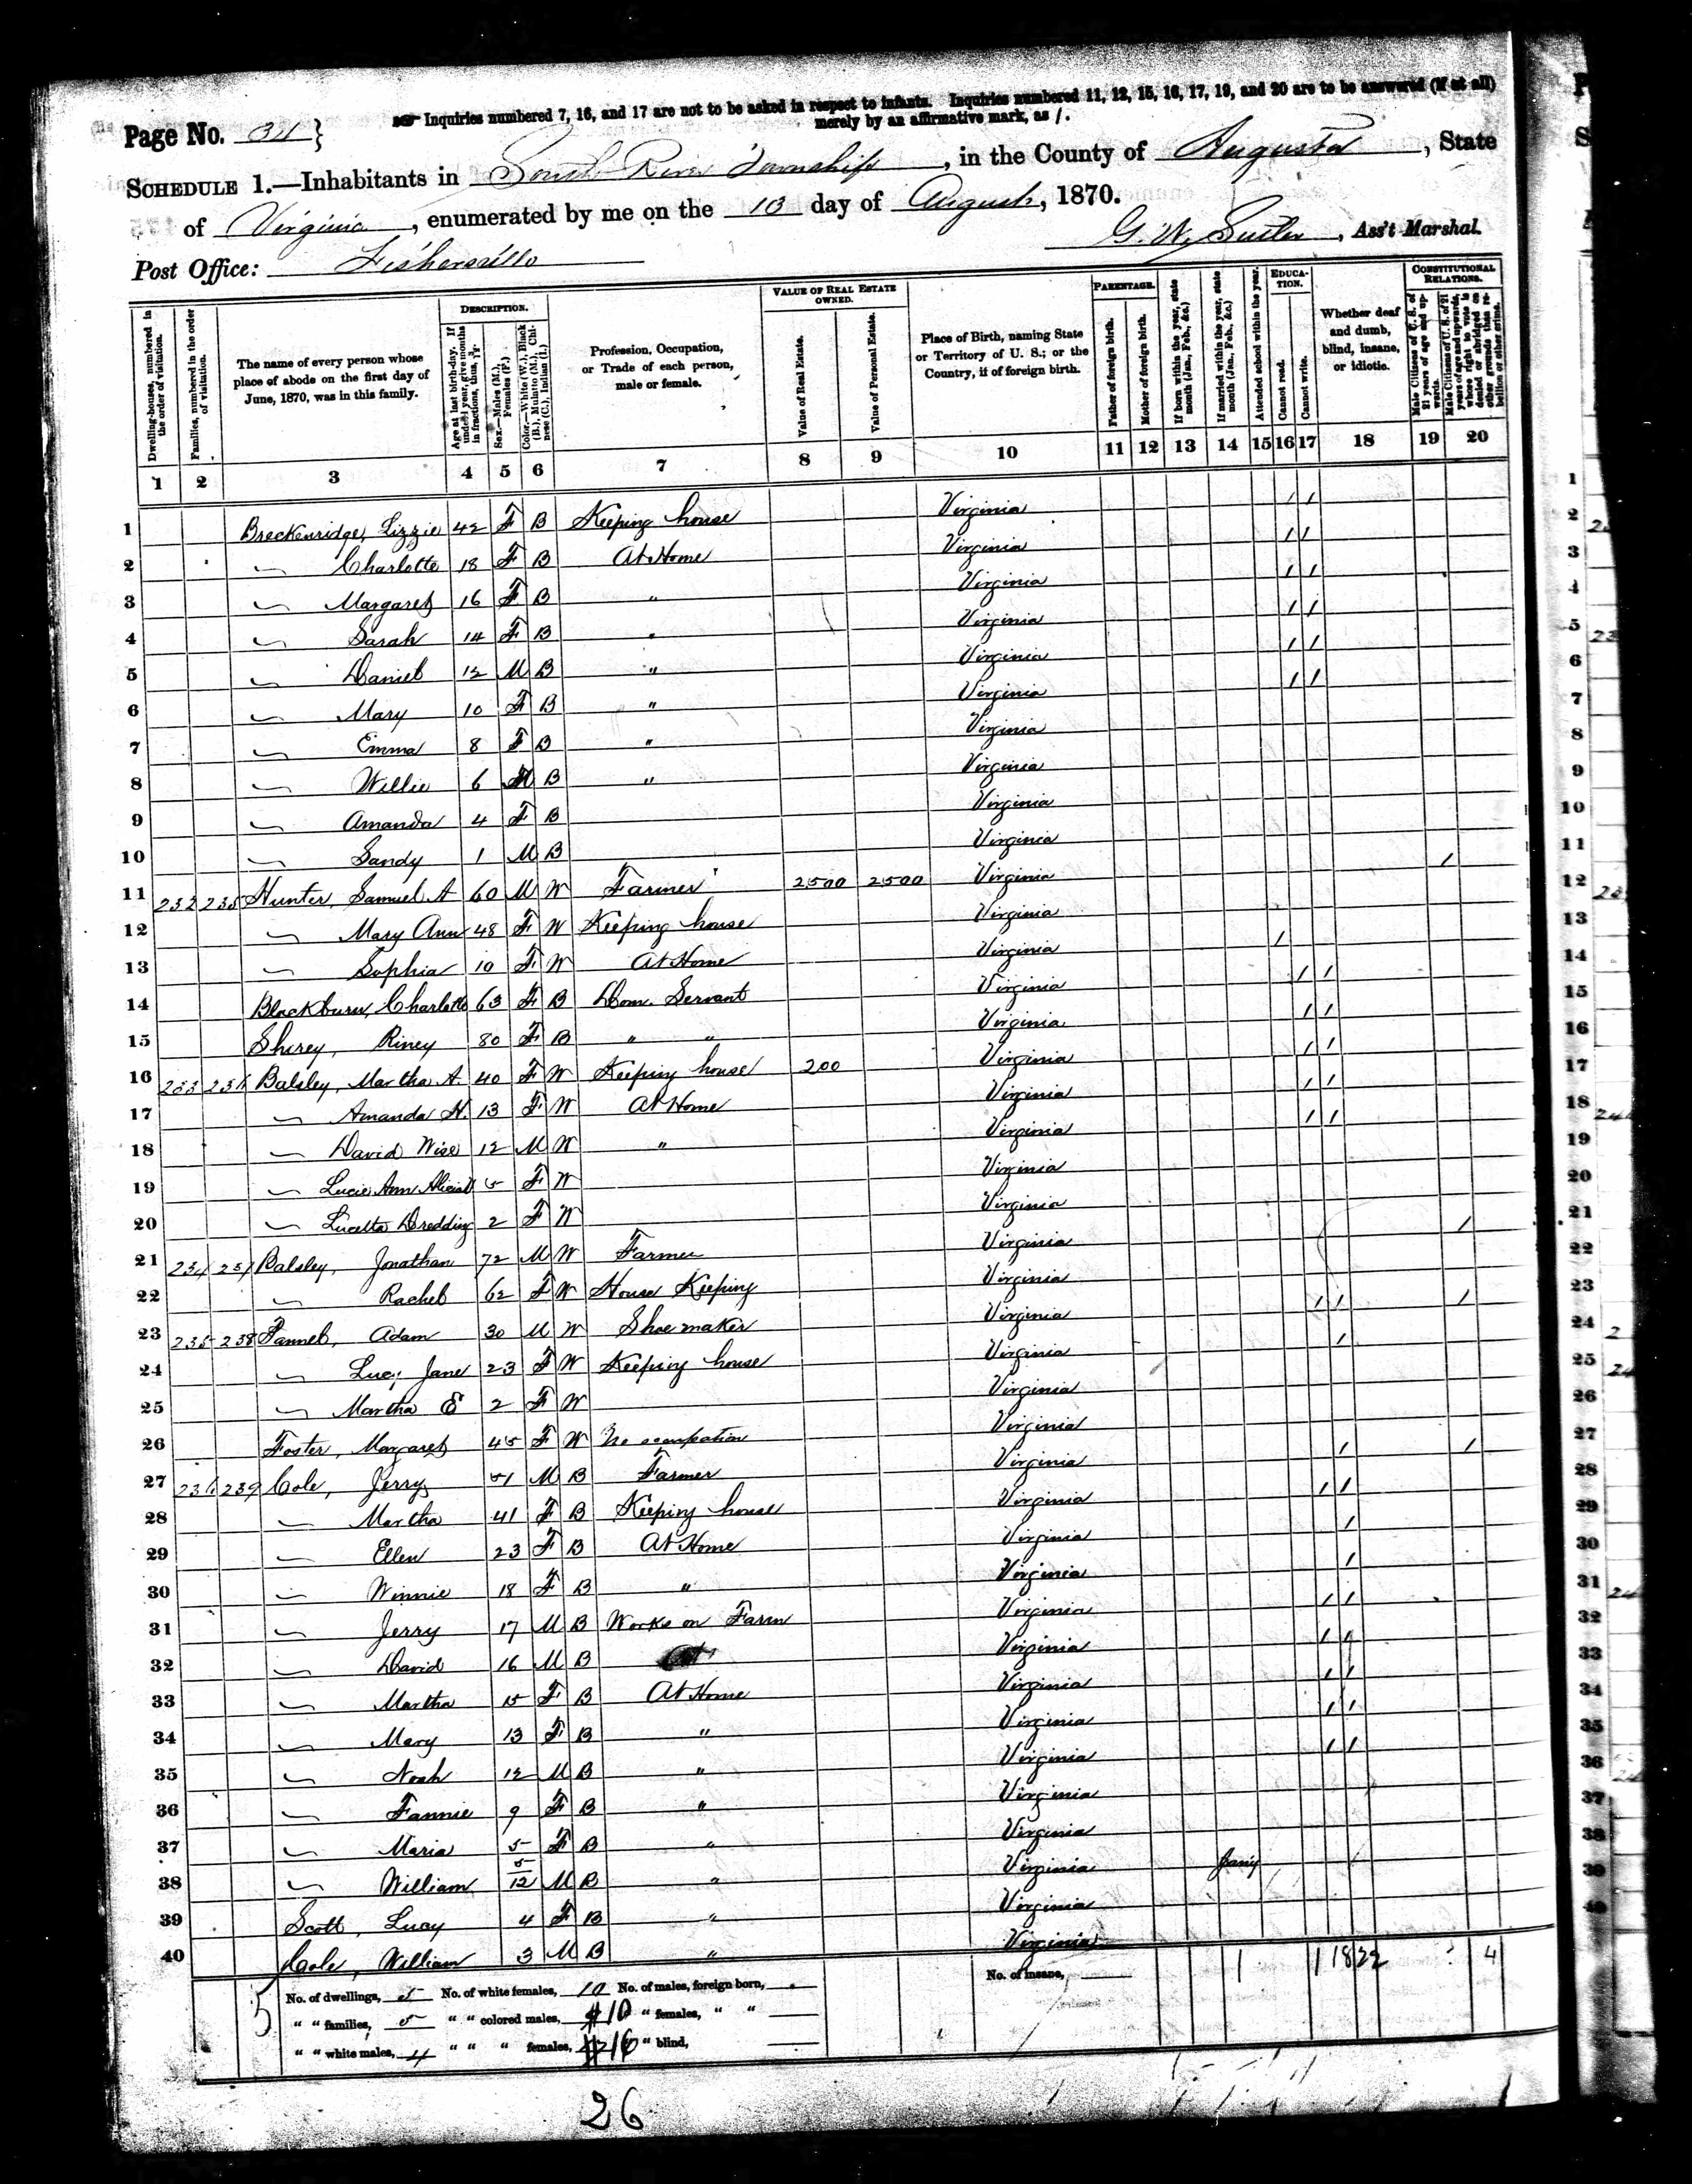 Inquiries numbered 7, 16, and 17 are not to be asked in respect to infants. Inquiries numbered 11, 12, 15, 16, 17, 19, and 20 are to be answered (if at all)
merely by an affirmative mark, as /.
Page No. 31 }
SCHEDULE 1.—Inhabitants in South River Township, in the County of Augusta, State
of Virginia, enumerated by me on the 10 day of August, 1870.
G. W. , Ass't Marshal.
Post Office: Fishersville
Dwelling-houses, numbered in the order of visitation.
Families, numbered in the order of visitation.
The name of every person whose place of abode on the first day of June, 1870, was in this family.
DESCRIPTION.
Age at last birth-day. If under 1 year, give months in fractions, thus, 3/12
Sex.—Males (M.), Females (F.)
Color.—White (W.), Black (B.), Mulatto (M.), Chinese (C.), Indian (I.)
Profession, Occupation, or Trade of each person, male or female.
VALUE OF REAL ESTATE OWNED.
Value of Real Estate.
Value of Personal Estate.
Place of Birth, naming State or Territory of U. S.; or the Country, if of foreign birth.
PARENTAGE.
Father of foreign birth.
Mother of foreign birth.
If born within the year, state month (Jan., Feb., &c.)
If married within the year, state month (Jan., Feb., &c.)
Attended school within the year.
EDUCATION.
Cannot read.
Cannot write.
Whether deaf and dumb, blind, insane, or idiotic.
CONSTITUTIONAL RELATIONS.
Male Citizens of U. S. of 21 years of age and upwards.
Male Citizens of U. S. of 21 years of age and upwards, whose right to vote is denied or abridged on other grounds than rebellion or other crime.
1 2 3 4 5 6 7 8 9 10 11 12 13 14 15 16 17 18 19 20
1 Breckenridge, Lizzie 42 F B Keeping house Virginia / / 1
2 " Charlotte 18 F B At Home Virginia / / 2
3 " Margaret 16 F B " Virginia / / 3
4 " Sarah 14 F B " Virginia / / 4
5 " Daniel 12 M B " Virginia / / 5
6 " Mary 10 F B " Virginia / / 6
7 " Emma 8 F B " Virginia 7
8 " Willie 6 M B " Virginia 8
9 " Amanda 4 F B Virginia 9
10 " Sandy 1 M B Virginia 10
11 232 235 Hunter, Samuel A 60 M W Farmer 2500 2500 Virginia / 11
12 " Mary Ann 48 F W Keeping house Virginia 12
13 " Sophia 10 F W At Home Virginia / 13
14 Blackburn, Charlotte 63 F B Dom. Servant Virginia / / 14
15 Shirey, Riney 80 F B " " Virginia / / 15
16 233 236 Balsley, Martha A. 40 F W Keeping house 200 Virginia / / 16
17 " Amanda H. 13 F W At Home Virginia / / 17
18 " David Wise 12 M W " Virginia / / 18
19 " Lucie Ann 5 F W Virginia 19
20 " Lucetta 2 F W Virginia 20
21 234 237 Balsley, Jonathan 72 M W Farmer Virginia / 21
22 " Rachel 62 F W House Keeping Virginia 22
23 235 238 Adam 30 M W Shoe maker Virginia / / / 23
24 " Lucy Jane 23 F W Keeping house Virginia / 24
25 " Martha E 2 F W Virginia 25
26 Foster, Margaret 45 F W No occupation Virginia 26
27 236 239 Cole, Jerry 51 M B Farmer Virginia / / 27
28 " Martha 41 F B Keeping house Virginia / / 28
29 " Ellen 23 F B At Home Virginia / 29
30 " Winnie 18 F B " Virginia / 30
31 " Jerry 17 M B Works on Farm Virginia / / 31
32 " David 16 M B Virginia / / 32
33 " Martha 15 F B At Home Virginia / / 33
34 " Mary 13 F B " Virginia / / 34
35 " Noah 12 M B " Virginia / / 35
36 " Fannie 9 F B " Virginia 36
37 " Maria 5 F B " Virginia 37
38 " William 5/12 M B " Virginia Jany 38
39 Scott, Lucy 4 F B " Virginia 39
40 Cole, William 3 M B " Virginia 40
No. of dwellings, 5 No. of white females, 10 No. of males, foreign born, No. of insane, 1 1 18 22 4
" " families, 5 " " colored males, 10 " females, " "
" " white males, 4 " " " females, 16 " blind,
5
26